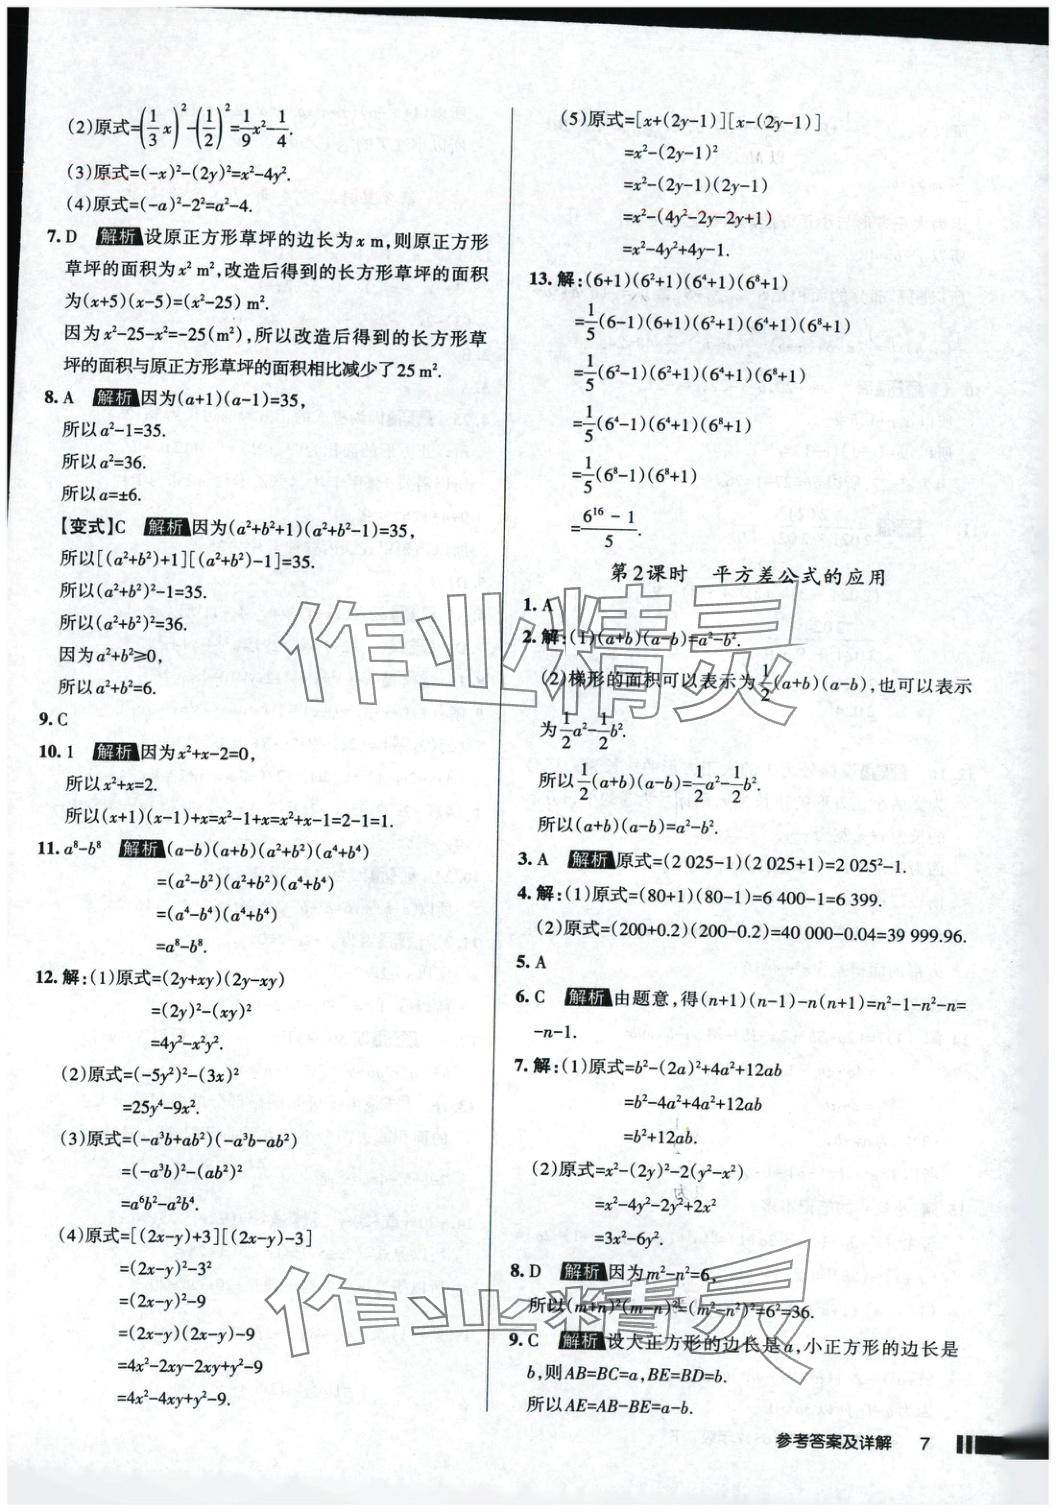 (2)原式=(1/3 x)²-(1/2)²=1/9 x²-1/4.
(3)原式=(-x)²-(2y)²=x²-4y².
(4)原式=(-a)²-2²=a²-4.
7. D 解析 设原正方形草坪的边长为 x m,则原正方形
草坪的面积为 x² m²,改造后得到的长方形草坪的面积
为(x+5)(x-5)=(x²-25) m².
因为 x²-25-x²=-25(m²),所以改造后得到的长方形草
坪的面积与原正方形草坪的面积相比减少了 25 m².
8. A 解析 因为(a+1)(a-1)=35,
所以 a²-1=35.
所以 a²=36.
所以 a=±6.
【变式】C 解析 因为(a²+b²+1)(a²+b²-1)=35,
所以[(a²+b²)+1][(a²+b²)-1]=35.
所以(a²+b²)²-1=35.
所以(a²+b²)²=36.
因为 a²+b²≥0,
所以 a²+b²=6.
9. C
10. 1 解析 因为 x²+x-2=0,
所以 x²+x=2.
所以(x+1)(x-1)+x=x²-1+x=x²+x-1=2-1=1.
11. a⁸-b⁸ 解析 (a-b)(a+b)(a²+b²)(a⁴+b⁴)
=(a²-b²)(a²+b²)(a⁴+b⁴)
=(a⁴-b⁴)(a⁴+b⁴)
=a⁸-b⁸.
12. 解:(1)原式=(2y+xy)(2y-xy)
=(2y)²-(xy)²
=4y²-x²y².
(2)原式=(-5y²)²-(3x)²
=25y⁴-9x².
(3)原式=(-a³b+ab²)(-a³b-ab²)
=(-a³b)²-(ab²)²
=a⁶b²-a²b⁴.
(4)原式=[(2x-y)+3][(2x-y)-3]
=(2x-y)²-3²
=(2x-y)²-9
=(2x-y)(2x-y)-9
=4x²-2xy-2xy+y²-9
=4x²-4xy+y²-9.
(5)原式=[x+(2y-1)][x-(2y-1)]
=x²-(2y-1)²
=x²-(2y-1)(2y-1)
=x²-(4y²-2y-2y+1)
=x²-4y²+4y-1.
13. 解:(6+1)(6²+1)(6⁴+1)(6⁸+1)
=1/5(6-1)(6+1)(6²+1)(6⁴+1)(6⁸+1)
=1/5(6²-1)(6²+1)(6⁴+1)(6⁸+1)
=1/5(6⁴-1)(6⁴+1)(6⁸+1)
=1/5(6⁸-1)(6⁸+1)
=(6¹⁶-1)/5.
第2课时 平方差公式的应用
1. A
2. 解:(1)(a+b)(a-b)=a²-b².
(2)梯形的面积可以表示为1/2(a+b)(a-b),也可以表示
为1/2 a²-1/2 b².
所以1/2(a+b)(a-b)=1/2 a²-1/2 b².
所以(a+b)(a-b)=a²-b².
3. A 解析 原式=(2 025-1)(2 025+1)=2 025²-1.
4. 解:(1)原式=(80+1)(80-1)=6 400-1=6 399.
(2)原式=(200+0.2)(200-0.2)=40 000-0.04=39 999.96.
5. A
6. C 解析 由题意,得(n+1)(n-1)-n(n+1)=n²-1-n²-n=
-n-1.
7. 解:(1)原式=b²-(2a)²+4a²+12ab
=b²-4a²+4a²+12ab
=b²+12ab.
(2)原式=x²-(2y)²-2(y²-x²)
=x²-4y²-2y²+2x²
=3x²-6y².
8. D 解析 因为 m²-n²=6,
所以(m+n)²(m-n)²=(m²-n²)²=6²=36.
9. C 解析 设大正方形的边长是 a,小正方形的边长是
b,则 AB=BC=a,BE=BD=b.
所以 AE=AB-BE=a-b.
参考答案及详解 7
作业精灵
作业精灵